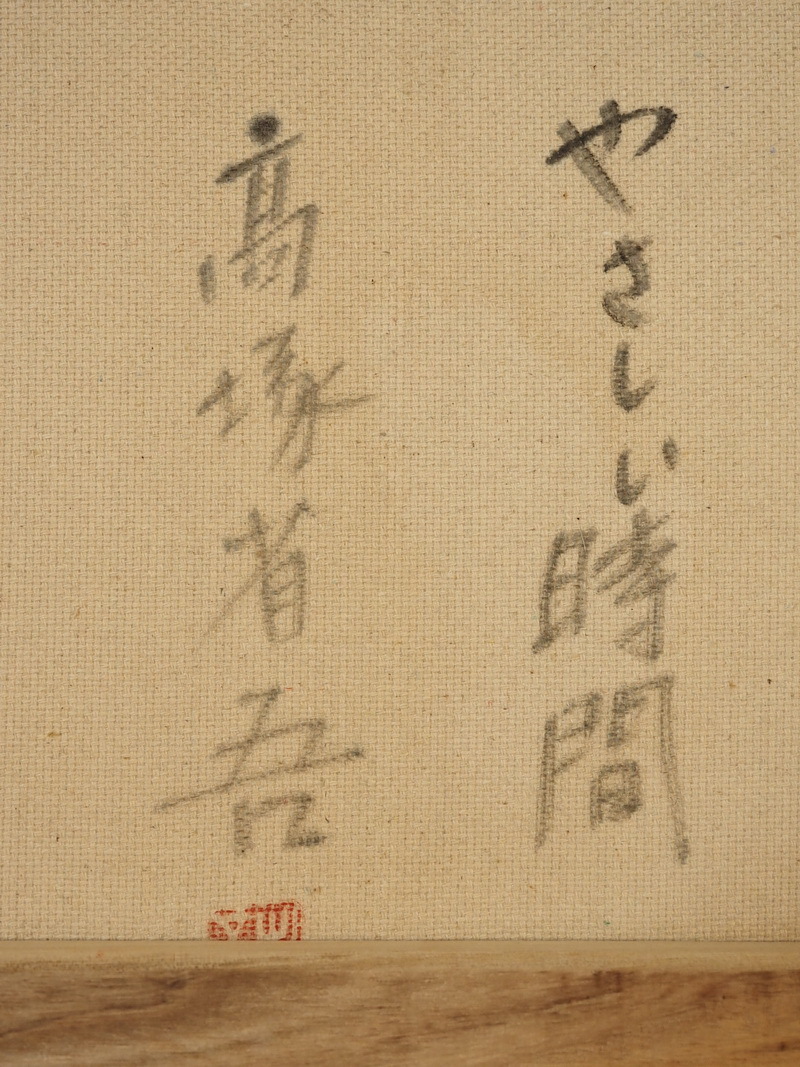 やさしい時間
高塚省吾